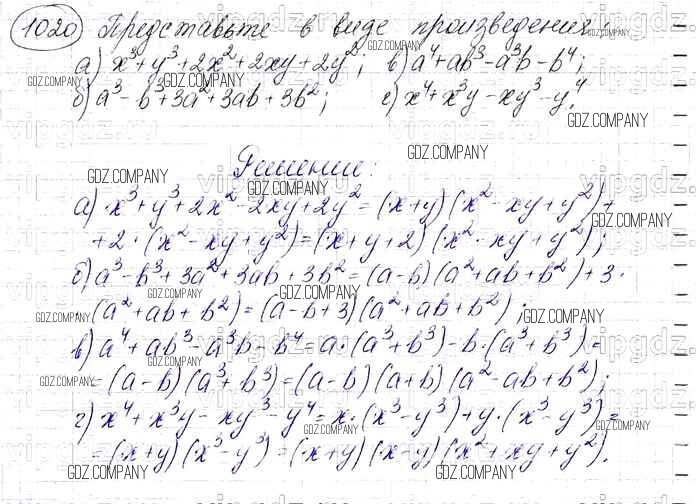 1020 Представьте в виде произведения:
а) x³+y³+2x²+2xy+2y²; в) a⁴+ab³-a³b-b⁴;
б) a³-b³+3a²+3ab+3b²; г) x⁴+x³y-xy³-y⁴.
Решение:
а) x³+y³+2x²-2xy+2y²=(x+y)(x²-xy+y²)+
+2·(x²-xy+y²)=(x+y+2)(x²-xy+y²);
б) a³-b³+3a²+3ab+3b²=(a-b)(a²+ab+b²)+3·
(a²+ab+b²)=(a-b+3)(a²+ab+b²);
в) a⁴+ab³-a³b-b⁴=a·(a³+b³)-b·(a³+b³)=
=(a-b)(a³+b³)=(a-b)(a+b)(a²-ab+b²);
г) x⁴+x³y-xy³-y⁴=x·(x³-y³)+y·(x³-y³)=
=(x+y)(x³-y³)=(x+y)(x-y)(x²+xy+y²).